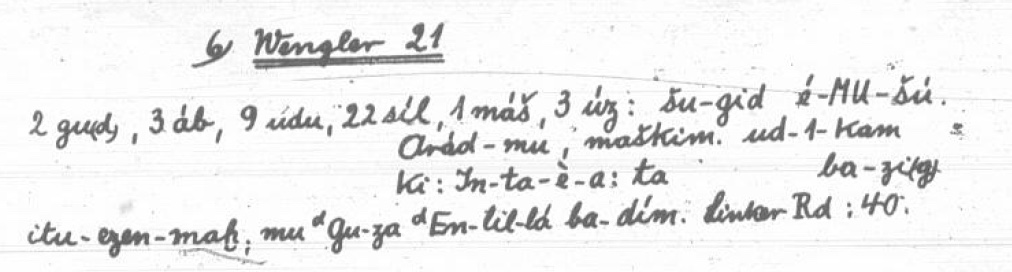 6) Wengler 21
2 gu(d), 3 áb, 9 udu, 22 síl, 1 máš, 3 úz : šu-gíd é-MU-šú.
Arád-mu, maškim. ud-1-kam
ki : In-ta-è-a : ta ba-zi(g)
itu-ezen-maḫ; mu ᵈGu-za ᵈEn-líl-lá ba-dím. linker Rd : 40.